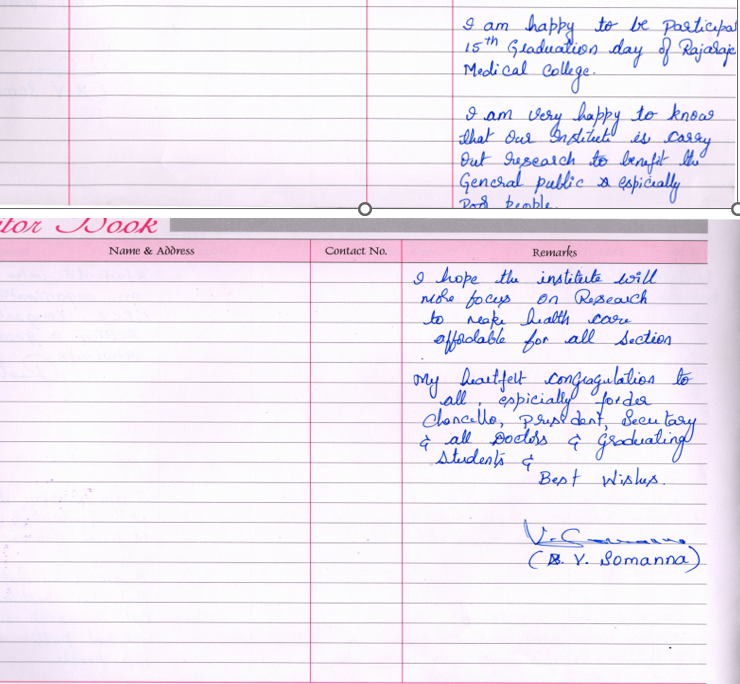 I am happy to be Participa
15th Graduation day of Rajaraje
Medical College.
I am very happy to know
that our Institute is carry
out research to benifit the
General public & espicially
Poor people.
tor Book
Name & Address Contact No. Remarks
I hope the institute will
more focus on Research
to make health care
affordable for all Section
My heartfelt congragulation to
all, espicially
Chancello, President, Secretary
& all Doctors & Graduating
Students &
Best Wishes.
V. Somanna
(V. Somanna)